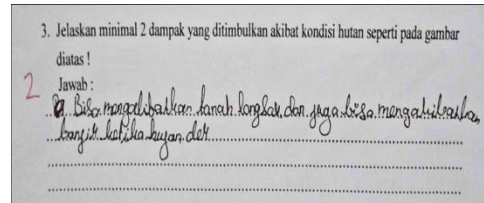 3. Jelaskan minimal 2 dampak yang ditimbulkan akibat kondisi hutan seperti pada gambar
diatas !
Jawab :
2
Bisa mengakibatkan tanah longsor, dan juga bisa mengakibatkan
banjir ketika hujan